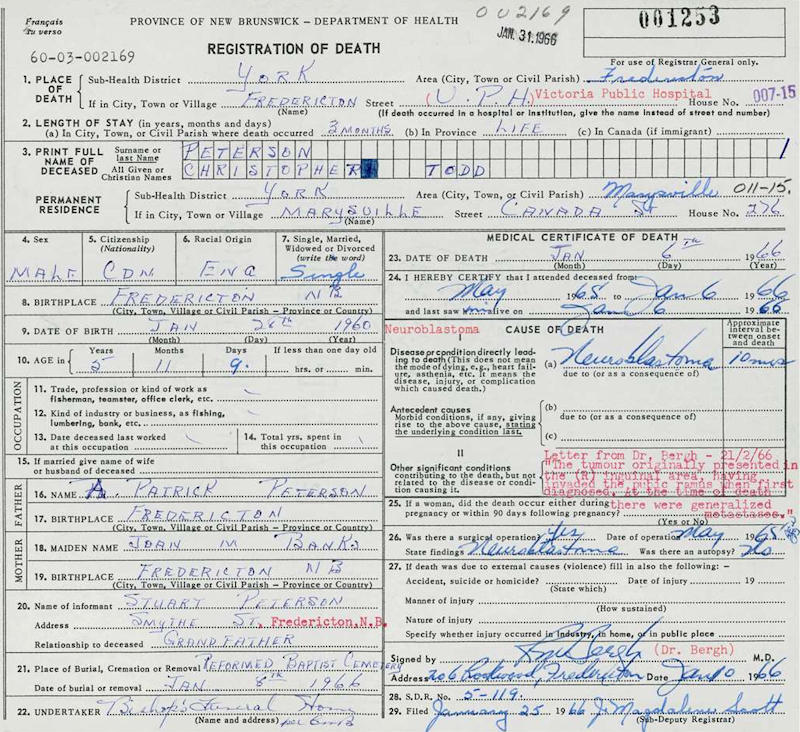 Français
au verso
PROVINCE OF NEW BRUNSWICK – DEPARTMENT OF HEALTH
002169
JAN. 31. 1966
001253
60-03-002169
REGISTRATION OF DEATH
For use of Registrar General only.
1. PLACE OF DEATH
Sub-Health District YORK Area (City, Town or Civil Parish) Fredericton
If in City, Town or Village FREDERICTON Street (V.P.H.) Victoria Public Hospital House No. 007-15
(Name) (If death occurred in a hospital or institution, give the name instead of street and number)
2. LENGTH OF STAY (in years, months and days)
(a) In City, Town, or Civil Parish where death occurred 3 MONTHS (b) In Province LIFE (c) In Canada (if immigrant)
3. PRINT FULL NAME OF DECEASED
Surname or last Name PETERSON
All Given or Christian Names CHRISTOPHER TODD
PERMANENT RESIDENCE
Sub-Health District YORK Area (City, Town, or Civil Parish) Marysville 011-15.
If in City, Town or Village MARYSVILLE Street CANADA ST House No. 276
(Name)
4. Sex MALE
5. Citizenship (Nationality) CDN
6. Racial Origin ENG
7. Single, Married, Widowed or Divorced (write the word) Single
8. BIRTHPLACE FREDERICTON NB
(City, Town, Village or Civil Parish – Province or Country)
9. DATE OF BIRTH JAN 26th 1960
(Month) (Day) (Year)
10. AGE in Years 5 Months 11 Days 9. If less than one day old hrs. or min.
OCCUPATION
11. Trade, profession or kind of work as fisherman, teamster, office clerk, etc.
12. Kind of industry or business, as fishing, lumbering, bank, etc.
13. Date deceased last worked at this occupation
14. Total yrs. spent in this occupation
15. If married give name of wife or husband of deceased
FATHER
16. NAME A. PATRICK PETERSON
17. BIRTHPLACE FREDERICTON
(City, Town, Village or Civil Parish – Province or Country)
MOTHER
18. MAIDEN NAME JOAN M BANKS
19. BIRTHPLACE FREDERICTON NB
(City, Town, Village or Civil Parish – Province or Country)
20. Name of informant STUART PETERSON
Address SMYTHE ST. Fredericton, N.B.
Relationship to deceased GRANDFATHER
21. Place of Burial, Cremation or Removal REFORMED BAPTIST CEMETERY
Date of burial or removal JAN 8th 1966
22. UNDERTAKER Bishop's Funeral Home
(Name and address)
MEDICAL CERTIFICATE OF DEATH
23. DATE OF DEATH JAN 6th 1966
(Month) (Day) (Year)
24. I HEREBY CERTIFY that I attended deceased from
May 1965 to Jan 6 1966
and last saw alive on Jan 6 1966
Neuroblastoma
CAUSE OF DEATH
Approximate interval between onset and death
I
Disease or condition directly leading to death (This does not mean the mode of dying, e.g., heart failure, asthenia, etc. It means the disease, injury, or complication which caused death.)
(a) Neuroblastoma 10 mos
due to (or as a consequence of)
Antecedent causes
Morbid conditions, if any, giving rise to the above cause, stating the underlying condition last.
(b)
due to (or as a consequence of)
(c)
II
Other significant conditions contributing to the death, but not related to the disease or condition causing it.
Letter from Dr. Bergh - 21/2/66
"The tumour originally presented in
the (R) inguinal area, having
invaded the pubic ramus when first
diagnosed. At the time of death
there were generalized
metastases."
25. If a woman, did the death occur either during pregnancy or within 90 days following pregnancy?
(Yes or No)
26. Was there a surgical operation? Yes Date of operation May 1965
State findings Neuroblastoma Was there an autopsy?
27. If death was due to external causes (violence) fill in also the following: –
Accident, suicide or homicide? Date of injury 19
(State which)
Manner of injury
(How sustained)
Nature of injury
Specify whether injury occurred in industry, in home, or in public place
Signed by Bergh (Dr. Bergh) M.D.
Address Fredericton Date Jan 10 1966
28. S.D.R. No. 5-119.
29. Filed January 25 1966 J. Magdalene Scott
(Sub-Deputy Registrar)